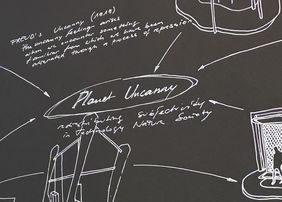 FREUD's Uncanny (1919)
The uncanny feeling arises
when we encounter something
familiar from which we have been
alienated through a process of repression
Planet Uncanny
redistributing Subjectivity
in Technology Nature Society